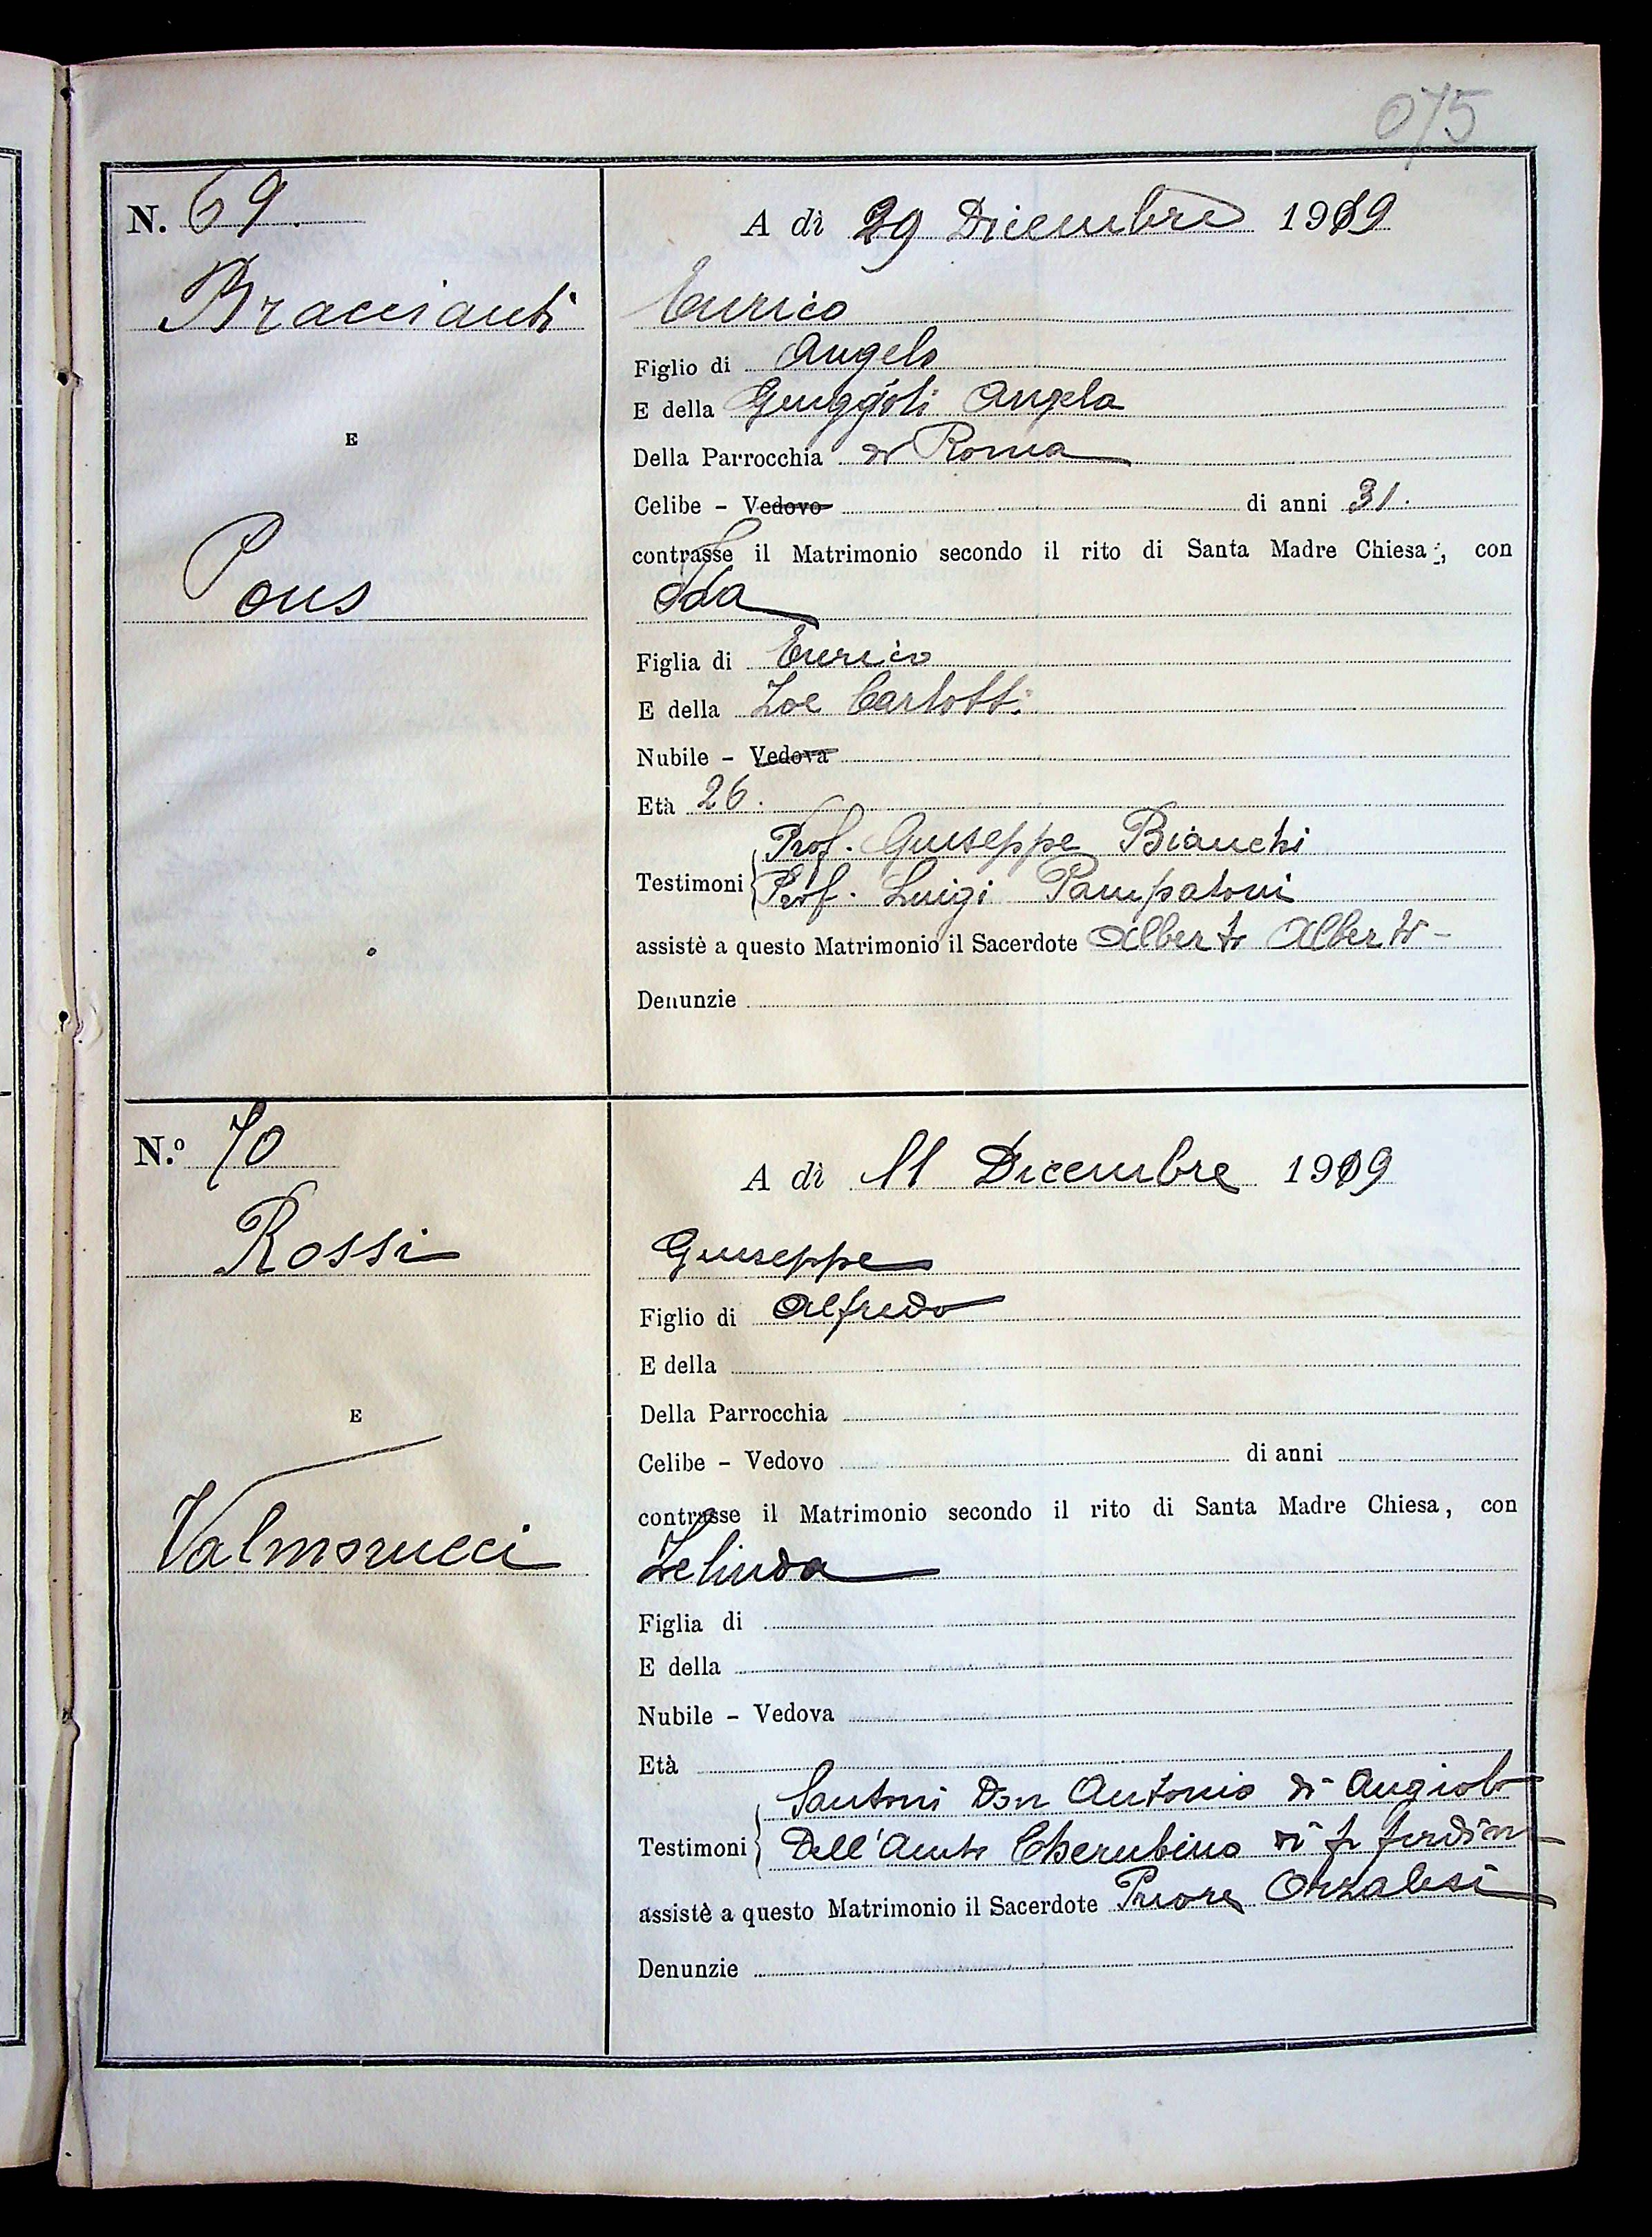 075
N. 69.
Braccianti
E
Pons
A dì 29 Dicembre 1919
Enrico
Figlio di Angelo
E della Angela
Della Parrocchia di Roma
Celibe – Vedovo di anni 31.
contrasse il Matrimonio secondo il rito di Santa Madre Chiesa, con
Ida
Figlia di Enrico
E della Zoe Carlotti
Nubile – Vedova
Età 26.
Prof. Giuseppe Bianchi
Testimoni Prof. Luigi Pampaloni
assistè a questo Matrimonio il Sacerdote Alberto Alberti
Denunzie
N.º 70
Rossi
E
Valmorucci
A dì 11 Dicembre 1919
Giuseppe
Figlio di Alfredo
E della
Della Parrocchia
Celibe – Vedovo di anni
contrasse il Matrimonio secondo il rito di Santa Madre Chiesa, con
Zelinda
Figlia di
E della
Nubile – Vedova
Età
Santoni Don Antonio di Angiolo
Testimoni Dell'Aiuto Cherubino di fu Ferdin
assistè a questo Matrimonio il Sacerdote Priore Orzalesi
Denunzie